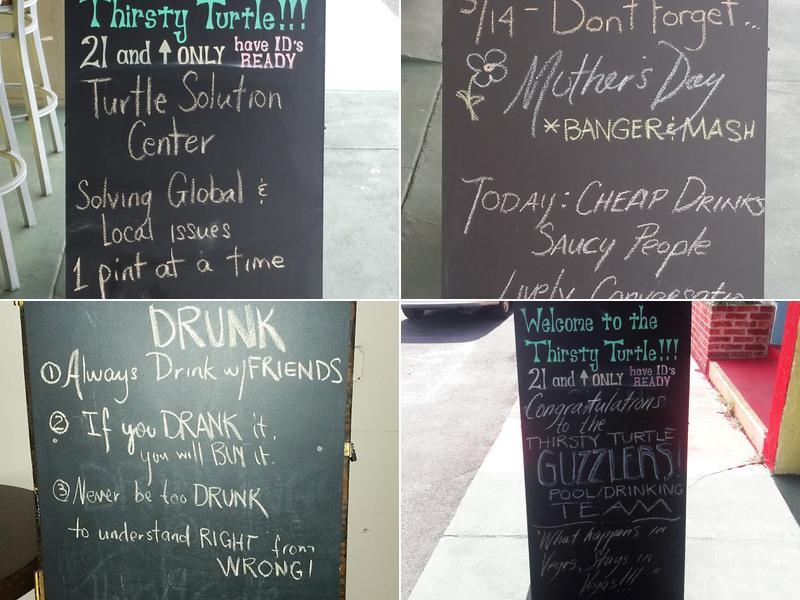 Thirsty Turtle!!!
21 and ↑ ONLY have ID's READY
Turtle Solution
Center
Solving Global &
Local issues
1 pint at a time
5/14 - Don't Forget...
Mother's Day
*BANGER & MASH
TODAY: CHEAP DRINKS
SAUCY People
Lively Conversatio
DRUNK
① Always Drink w/FRIENDS
② If you DRANK it,
you will BUY it.
③ Never be too DRUNK
to understand RIGHT from
WRONG!
Welcome to the
Thirsty Turtle!!!
21 and ↑ ONLY have ID's READY
Congratulations
to the
THIRSTY TURTLE
GUZZLERS!
POOL/DRINKING
TEAM
"What happens in
Vegas, Stays in
Vegas!!!!"